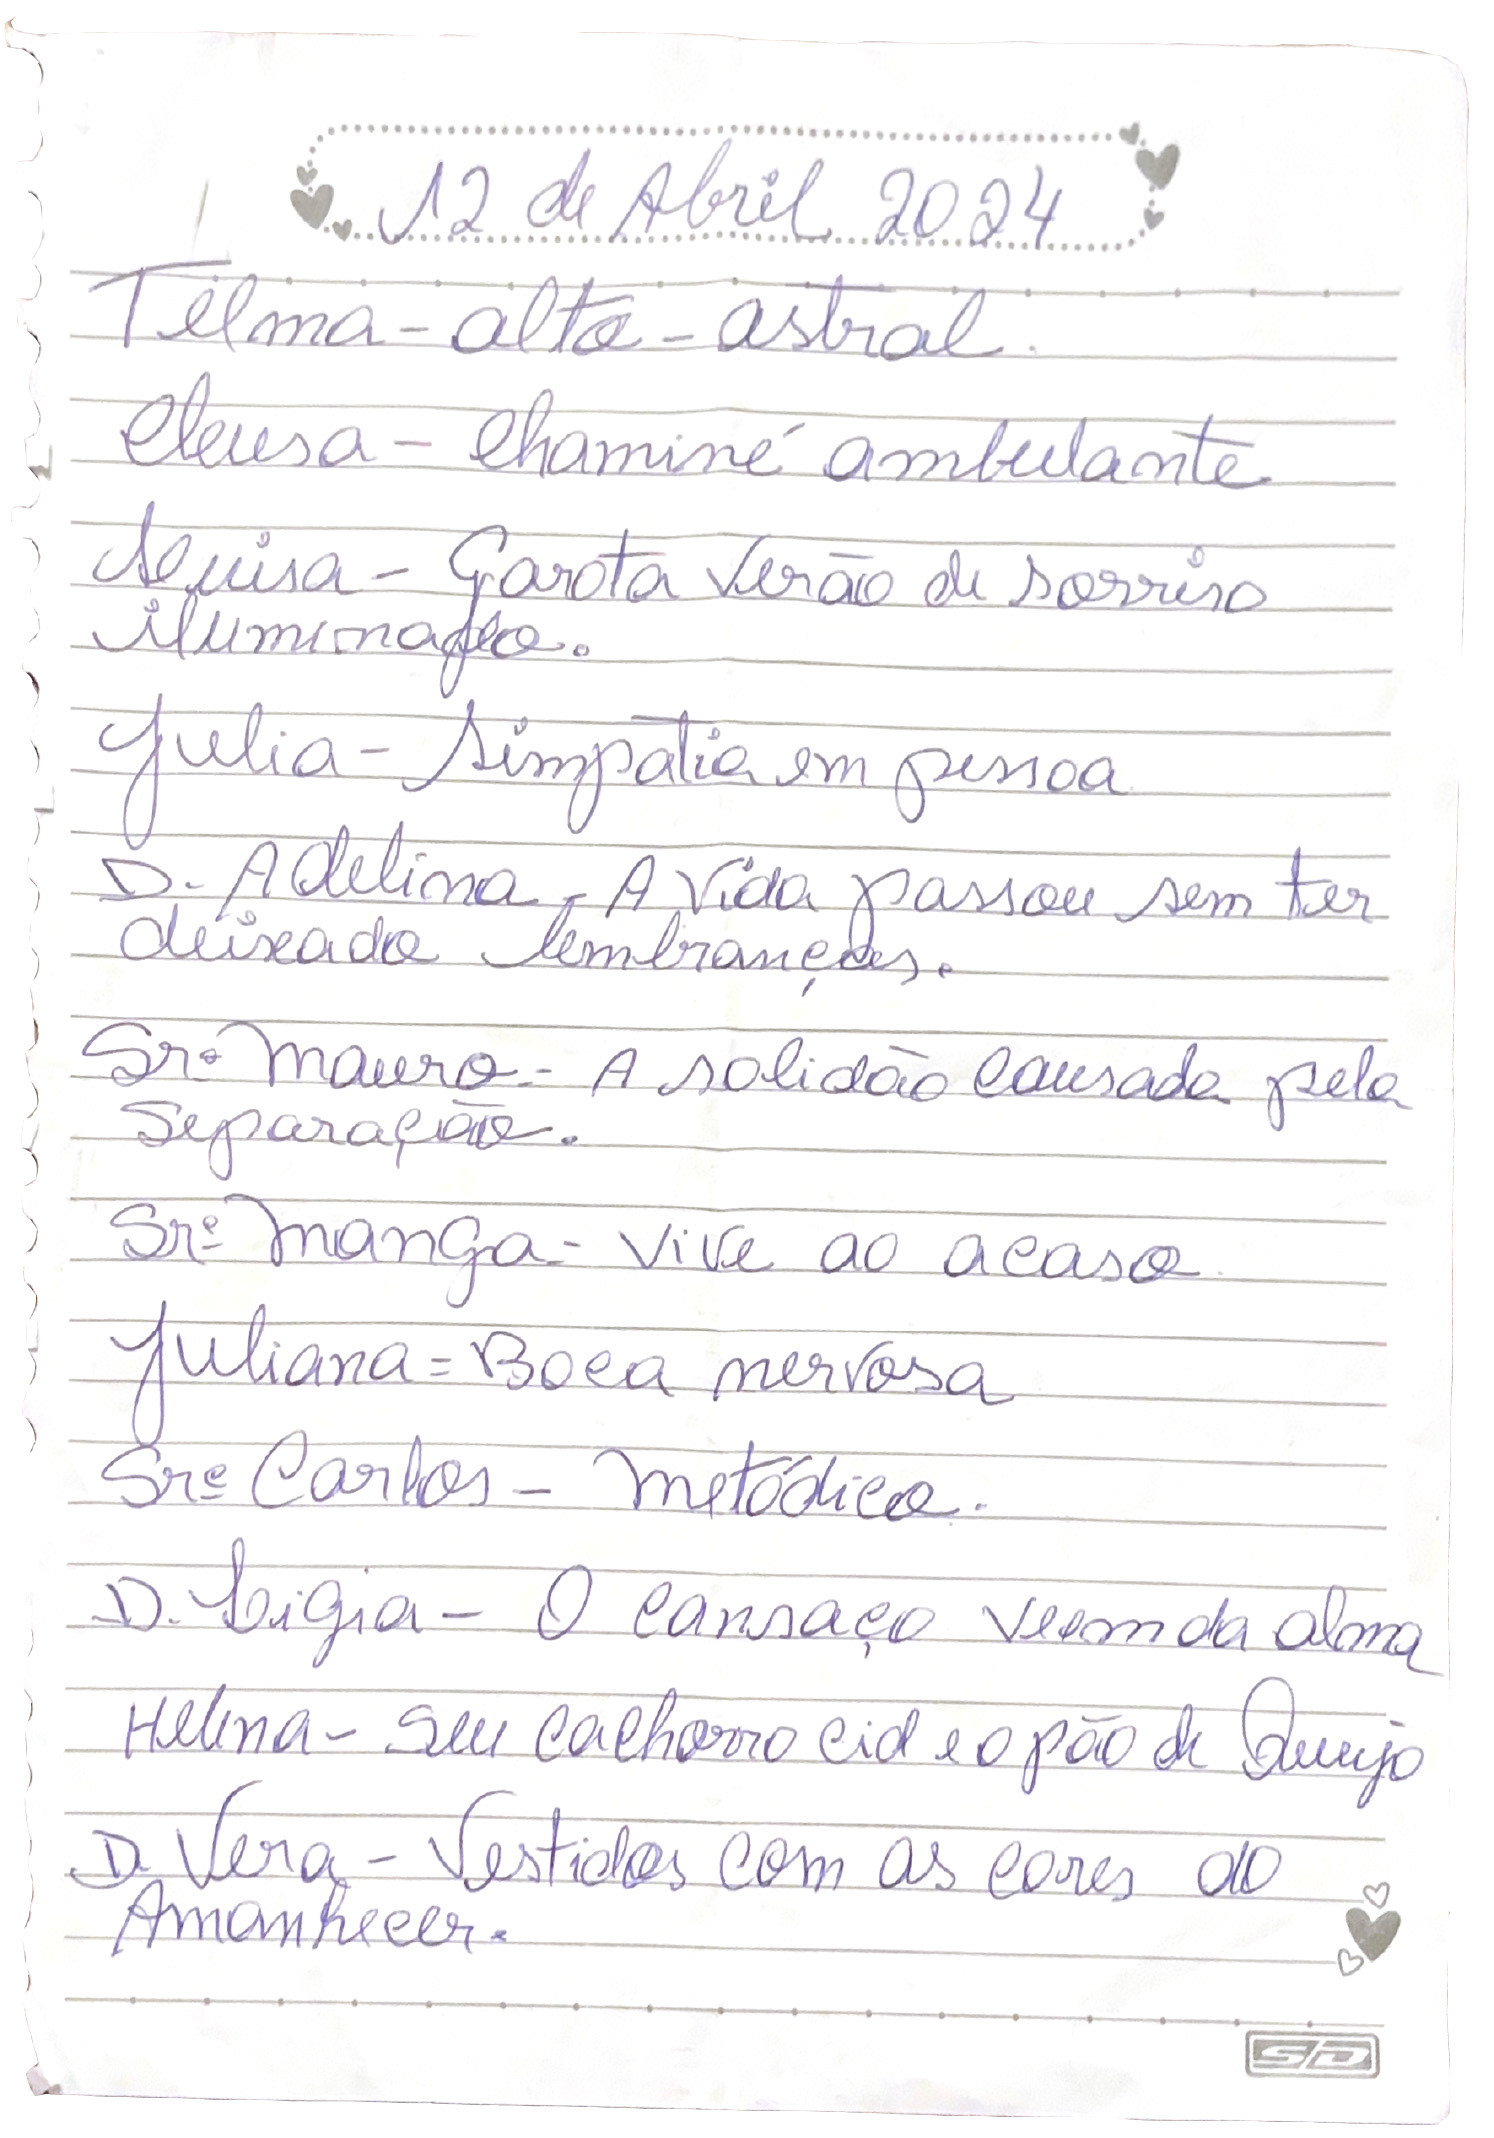 12 de Abril 2024
Telma - alto - astral.
Cleusa - Chaminé ambulante
Garota Verão de sorriso
iluminado.
Julia - Simpatia em pessoa
D. Adelina - A vida passou sem ter
deixado lembranças.
Srº Mauro - A solidão causada pela
separação.
Srº Manga - Vive ao acaso.
Juliana = Boca nervosa
Srº Carlos - Metódico.
D. Ligia - O cansaço veem da alma
Helena - Seu cachorro cid e o pão de Queijo
D. Vera - Vestidos com as cores do
Amanhecer.
SD